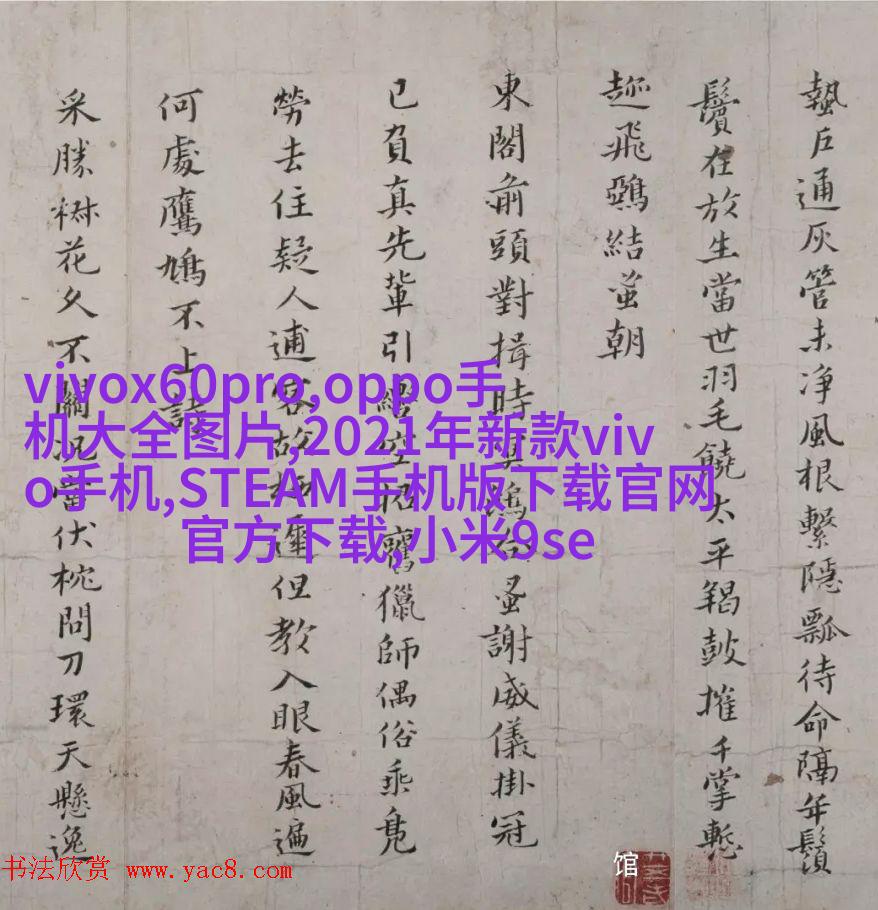 蟄戶通灰管未淨風根繫隱瓢待命隔年鬚
鬢在放生當世羽毛饒太平羯鼓摧千掌慙
趂飛鵶結蚤朝
東閣前頭對揖時 蚤謝威儀掛冠
已負真先輩引 舊獵師偶俗乘鳧
勞去住疑人逋客 但教入眼春風遍
何處鷹鳩不上
采勝 花久不關 伏枕問刀環天懸逸
vivox60pro,oppo手
机大全图片,2021年新款viv
o手机,STEAM手机版下载官网
官方下载,小米9se
馆
书法欣赏 www.yac8.com